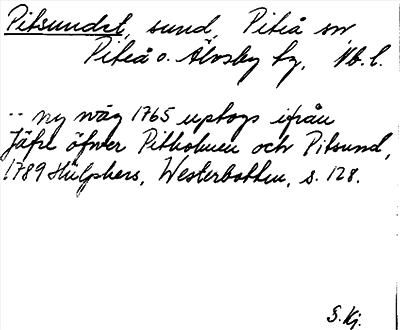 Pitsundet, sund, Piteå sn
Piteå o. Älvsby tg, Vb. l.
-- ny wäg 1765 uptogs ifrån
Jäfre öfwer Pitholmen och Pitsund,
1789 Hülphers, Westerbotten, s. 128.
S. Kj.